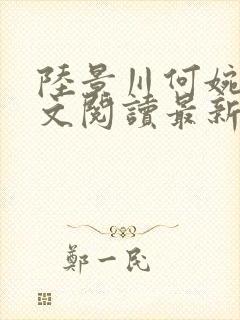 陸景川何婉
文閱讀最新
鄭一民